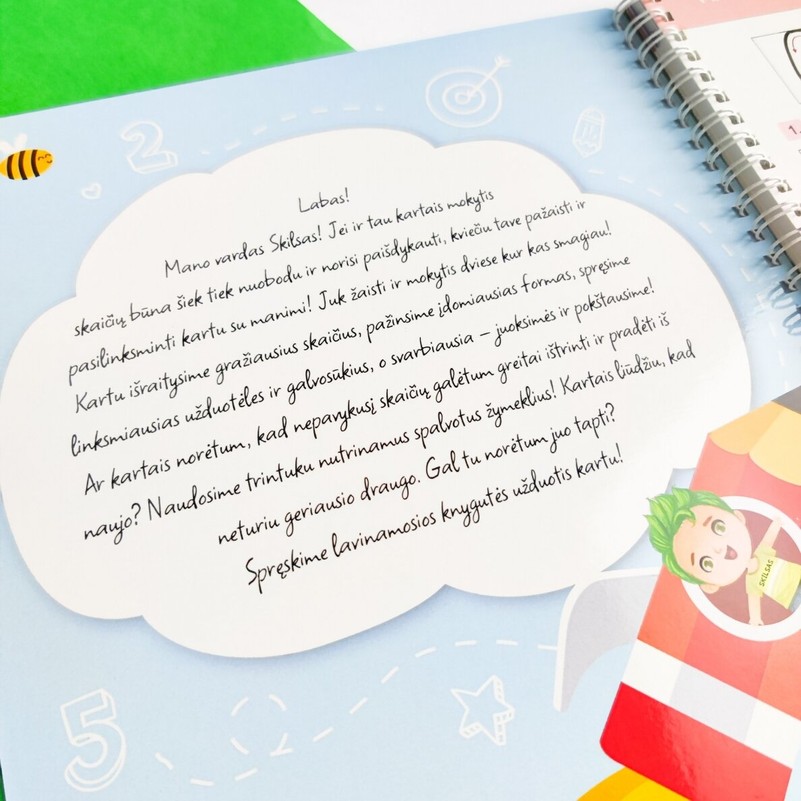 Labas!
Mano vardas Skilsas! Jei ir tau kartais mokytis
skaičių būna šiek tiek nuobodu ir norisi paišdykauti, kviečiu tave pažaisti ir
pasilinksminti kartu su manimi! Juk žaisti ir mokytis dviese kur kas smagiau!
Kartu išraitysime gražiausius skaičius, pažinsime įdomiausias formas, spręsime
linksmiausias užduotėles ir galvosūkius, o svarbiausia – juoksimės ir pokštausime!
Ar kartais norėtum, kad nepavykusį skaičių galėtum greitai ištrinti ir pradėti iš
naujo? Naudosime trintuku nutrinamus spalvotus žymeklius! Kartais liūdžiu, kad
neturiu geriausio draugo. Gal tu norėtum juo tapti?
Spręskime lavinamosios knygutės užduotis kartu!
2
5
1.
SKILSAS